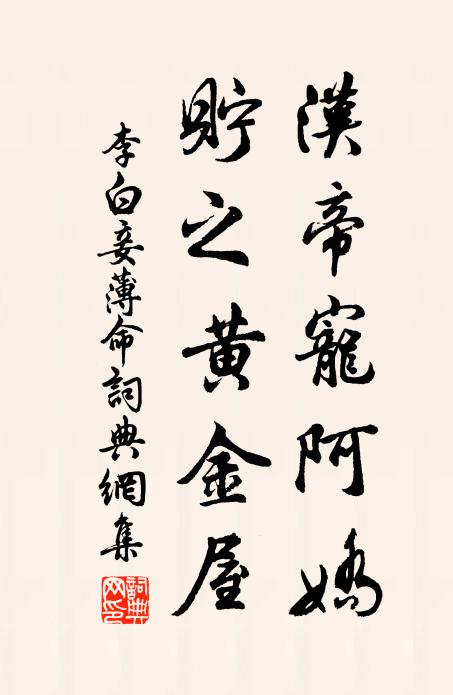 漢帝寵阿嬌
貯之黃金屋
李白妾薄命詞典網集
詞典
网印